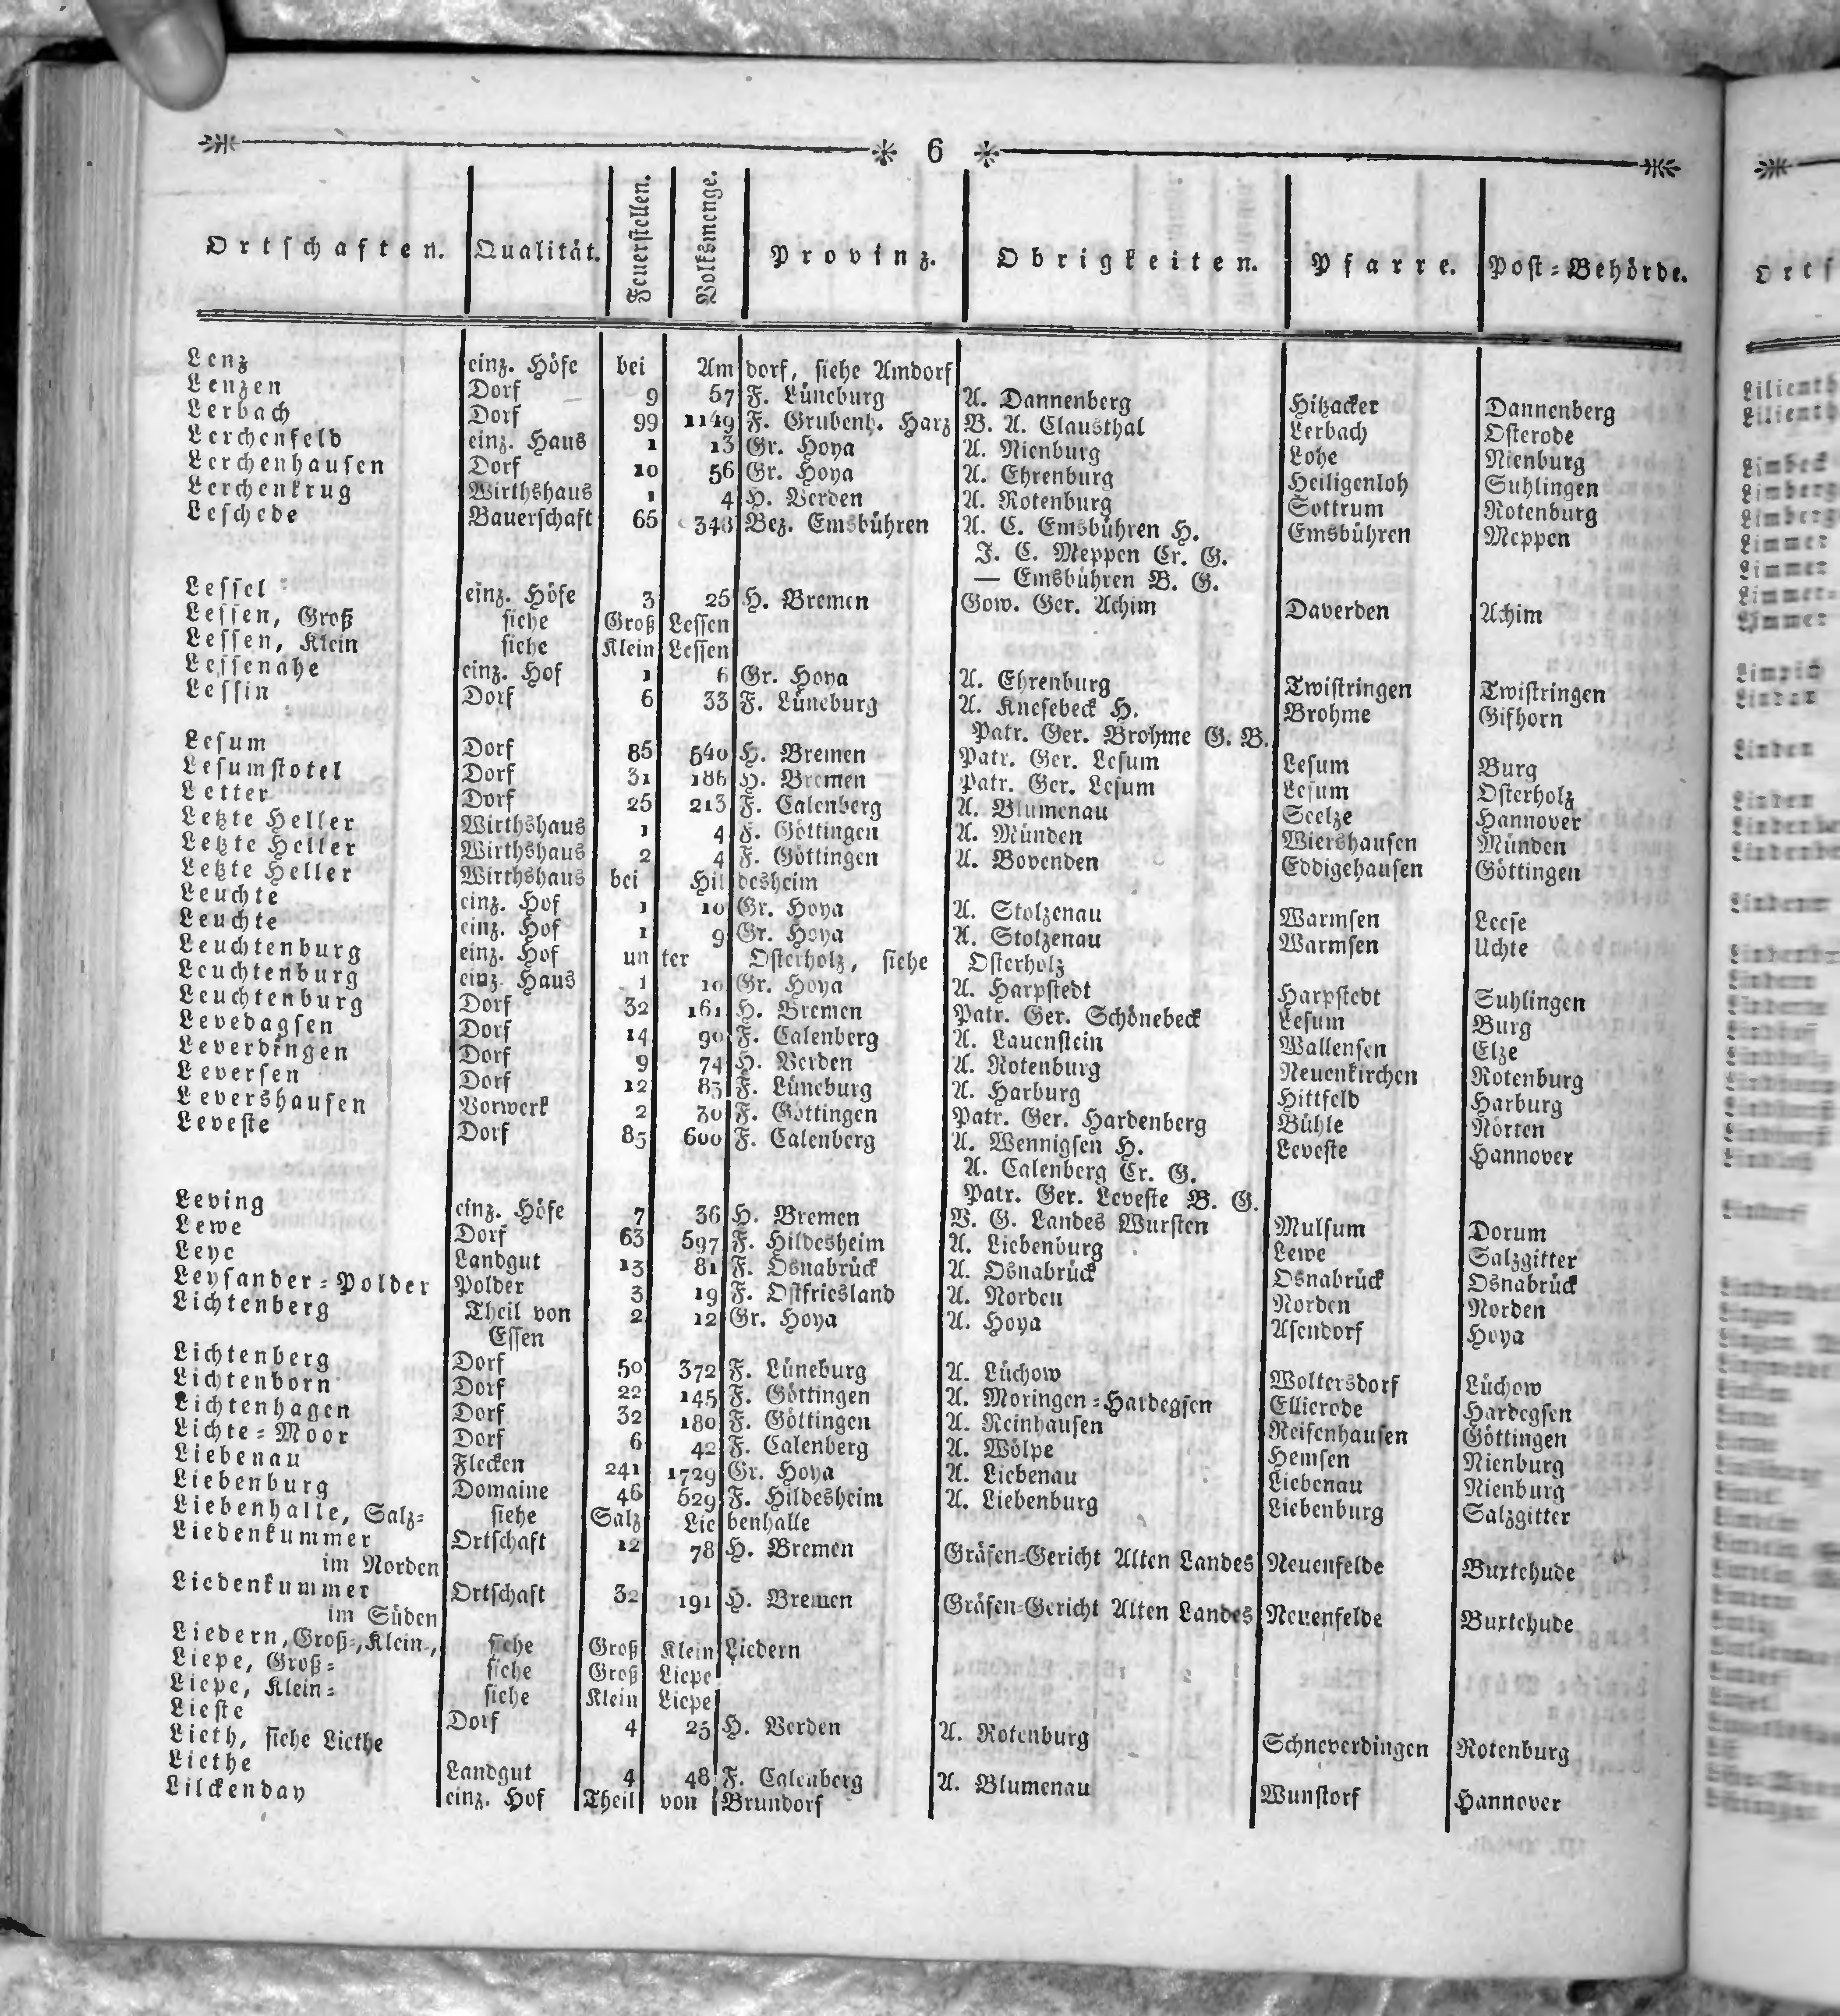 6
Ortschaften. Qualität. Feuerstellen. Volksmenge. Provinz. Obrigkeiten. Pfarre. Post-Behörde.
Lenz einz. Höfe bei Amdorf, siehe Amdorf
Lenzen Dorf 9 57 F. Lüneburg A. Dannenberg Hitzacker Dannenberg
Lerbach Dorf 99 1149 F. Grubenh. Harz B. A. Clausthal Lerbach Osterode
Lerchenfeld einz. Haus 1 13 Gr. Hoya A. Nienburg Lohe Nienburg
Lerchenhausen Dorf 10 56 Gr. Hoya A. Ehrenburg Heiligenloh Suhlingen
Lerchenkrug Wirthshaus 1 4 H. Verden A. Rotenburg Sottrum Rotenburg
Leschede Bauerschaft 65 348 Bez. Emsbühren A. E. Emsbühren H. Emsbühren Meppen
J. C. Meppen Cr. G.
— Emsbühren B. G.
Lessel einz. Höfe 3 25 H. Bremen Gow. Ger. Achim Daverden Achim
Lessen, Groß siehe Groß Lessen
Lessen, Klein siehe Klein Lessen
Lessenahe einz. Hof 1 6 Gr. Hoya A. Ehrenburg Twistringen Twistringen
Lessin Dorf 6 33 F. Lüneburg A. Knesebeck H. Brohme Gifhorn
Patr. Ger. Brohme G. B.
Lesum Dorf 85 540 H. Bremen Patr. Ger. Lesum Lesum Burg
Lesumstotel Dorf 31 186 H. Bremen Patr. Ger. Lesum Lesum Osterholz
Letter Dorf 25 213 F. Calenberg A. Blumenau Seelze Hannover
Letzte Heller Wirthshaus 1 4 F. Göttingen A. Münden Wiershausen Münden
Letzte Heller Wirthshaus 2 4 F. Göttingen A. Bovenden Eddigehausen Göttingen
Letzte Heller Wirthshaus bei Hildesheim
Leuchte einz. Hof 1 10 Gr. Hoya A. Stolzenau Warmsen Leese
Leuchte einz. Hof 1 9 Gr. Hoya A. Stolzenau Warmsen Uchte
Leuchtenburg einz. Hof unter Osterholz, siehe Osterholz
Leuchtenburg einz. Haus 1 10 Gr. Hoya A. Harpstedt Harpstedt Suhlingen
Leuchtenburg Dorf 32 161 H. Bremen Patr. Ger. Schönebeck Lesum Burg
Levedagsen Dorf 14 90 F. Calenberg A. Lauenstein Wallensen Elze
Leverdingen Dorf 9 74 H. Verden A. Rotenburg Neuenkirchen Rotenburg
Leversen Dorf 12 83 F. Lüneburg A. Harburg Hittfeld Harburg
Levershausen Vorwerk 2 30 F. Göttingen Patr. Ger. Hardenberg Bühle Nörten
Leveste Dorf 85 600 F. Calenberg A. Wennigsen H. Leveste Hannover
A. Calenberg Cr. G.
Patr. Ger. Leveste B. G.
Leving einz. Höfe 7 36 H. Bremen V. G. Landes Wursten Mulsum Dorum
Lewe Dorf 63 597 F. Hildesheim A. Liebenburg Lewe Salzgitter
Leye Landgut 13 81 F. Osnabrück A. Osnabrück Osnabrück Osnabrück
Leysander-Polder Polder 3 19 F. Ostfriesland A. Norden Norden Norden
Lichtenberg Theil von 2 12 Gr. Hoya A. Hoya Asendorf Hoya
Essen
Lichtenberg Dorf 50 372 F. Lüneburg A. Lüchow Woltersdorf Lüchow
Lichtenborn Dorf 22 145 F. Göttingen A. Moringen-Hardegsen Ellierode Hardegsen
Lichtenhagen Dorf 32 180 F. Göttingen A. Reinhausen Reifenhausen Göttingen
Lichte-Moor Dorf 6 42 F. Calenberg A. Wölpe Hemsen Nienburg
Liebenau Flecken 241 1729 Gr. Hoya A. Liebenau Liebenau Nienburg
Liebenburg Domaine 46 629 F. Hildesheim A. Liebenburg Liebenburg Salzgitter
Liebenhalle, Salz- siehe Salz Liebenhalle
Liedenkummer Ortschaft 12 78 H. Bremen Gräfen-Gericht Alten Landes Neuenfelde Buxtehude
im Norden
Liedenkummer Ortschaft 32 191 H. Bremen Gräfen-Gericht Alten Landes Neuenfelde Buxtehude
im Süden
Liedern, Groß-, Klein-, siehe Groß Klein Liedern
Liepe, Groß- siehe Groß Liepe
Liepe, Klein- siehe Klein Liepe
Lieste Dorf 4 25 H. Verden A. Rotenburg Schneverdingen Rotenburg
Lieth, siehe Liethe
Liethe Landgut 4 48 F. Calenberg A. Blumenau Wunstorf Hannover
Lilckenday einz. Hof Theil von Brundorf